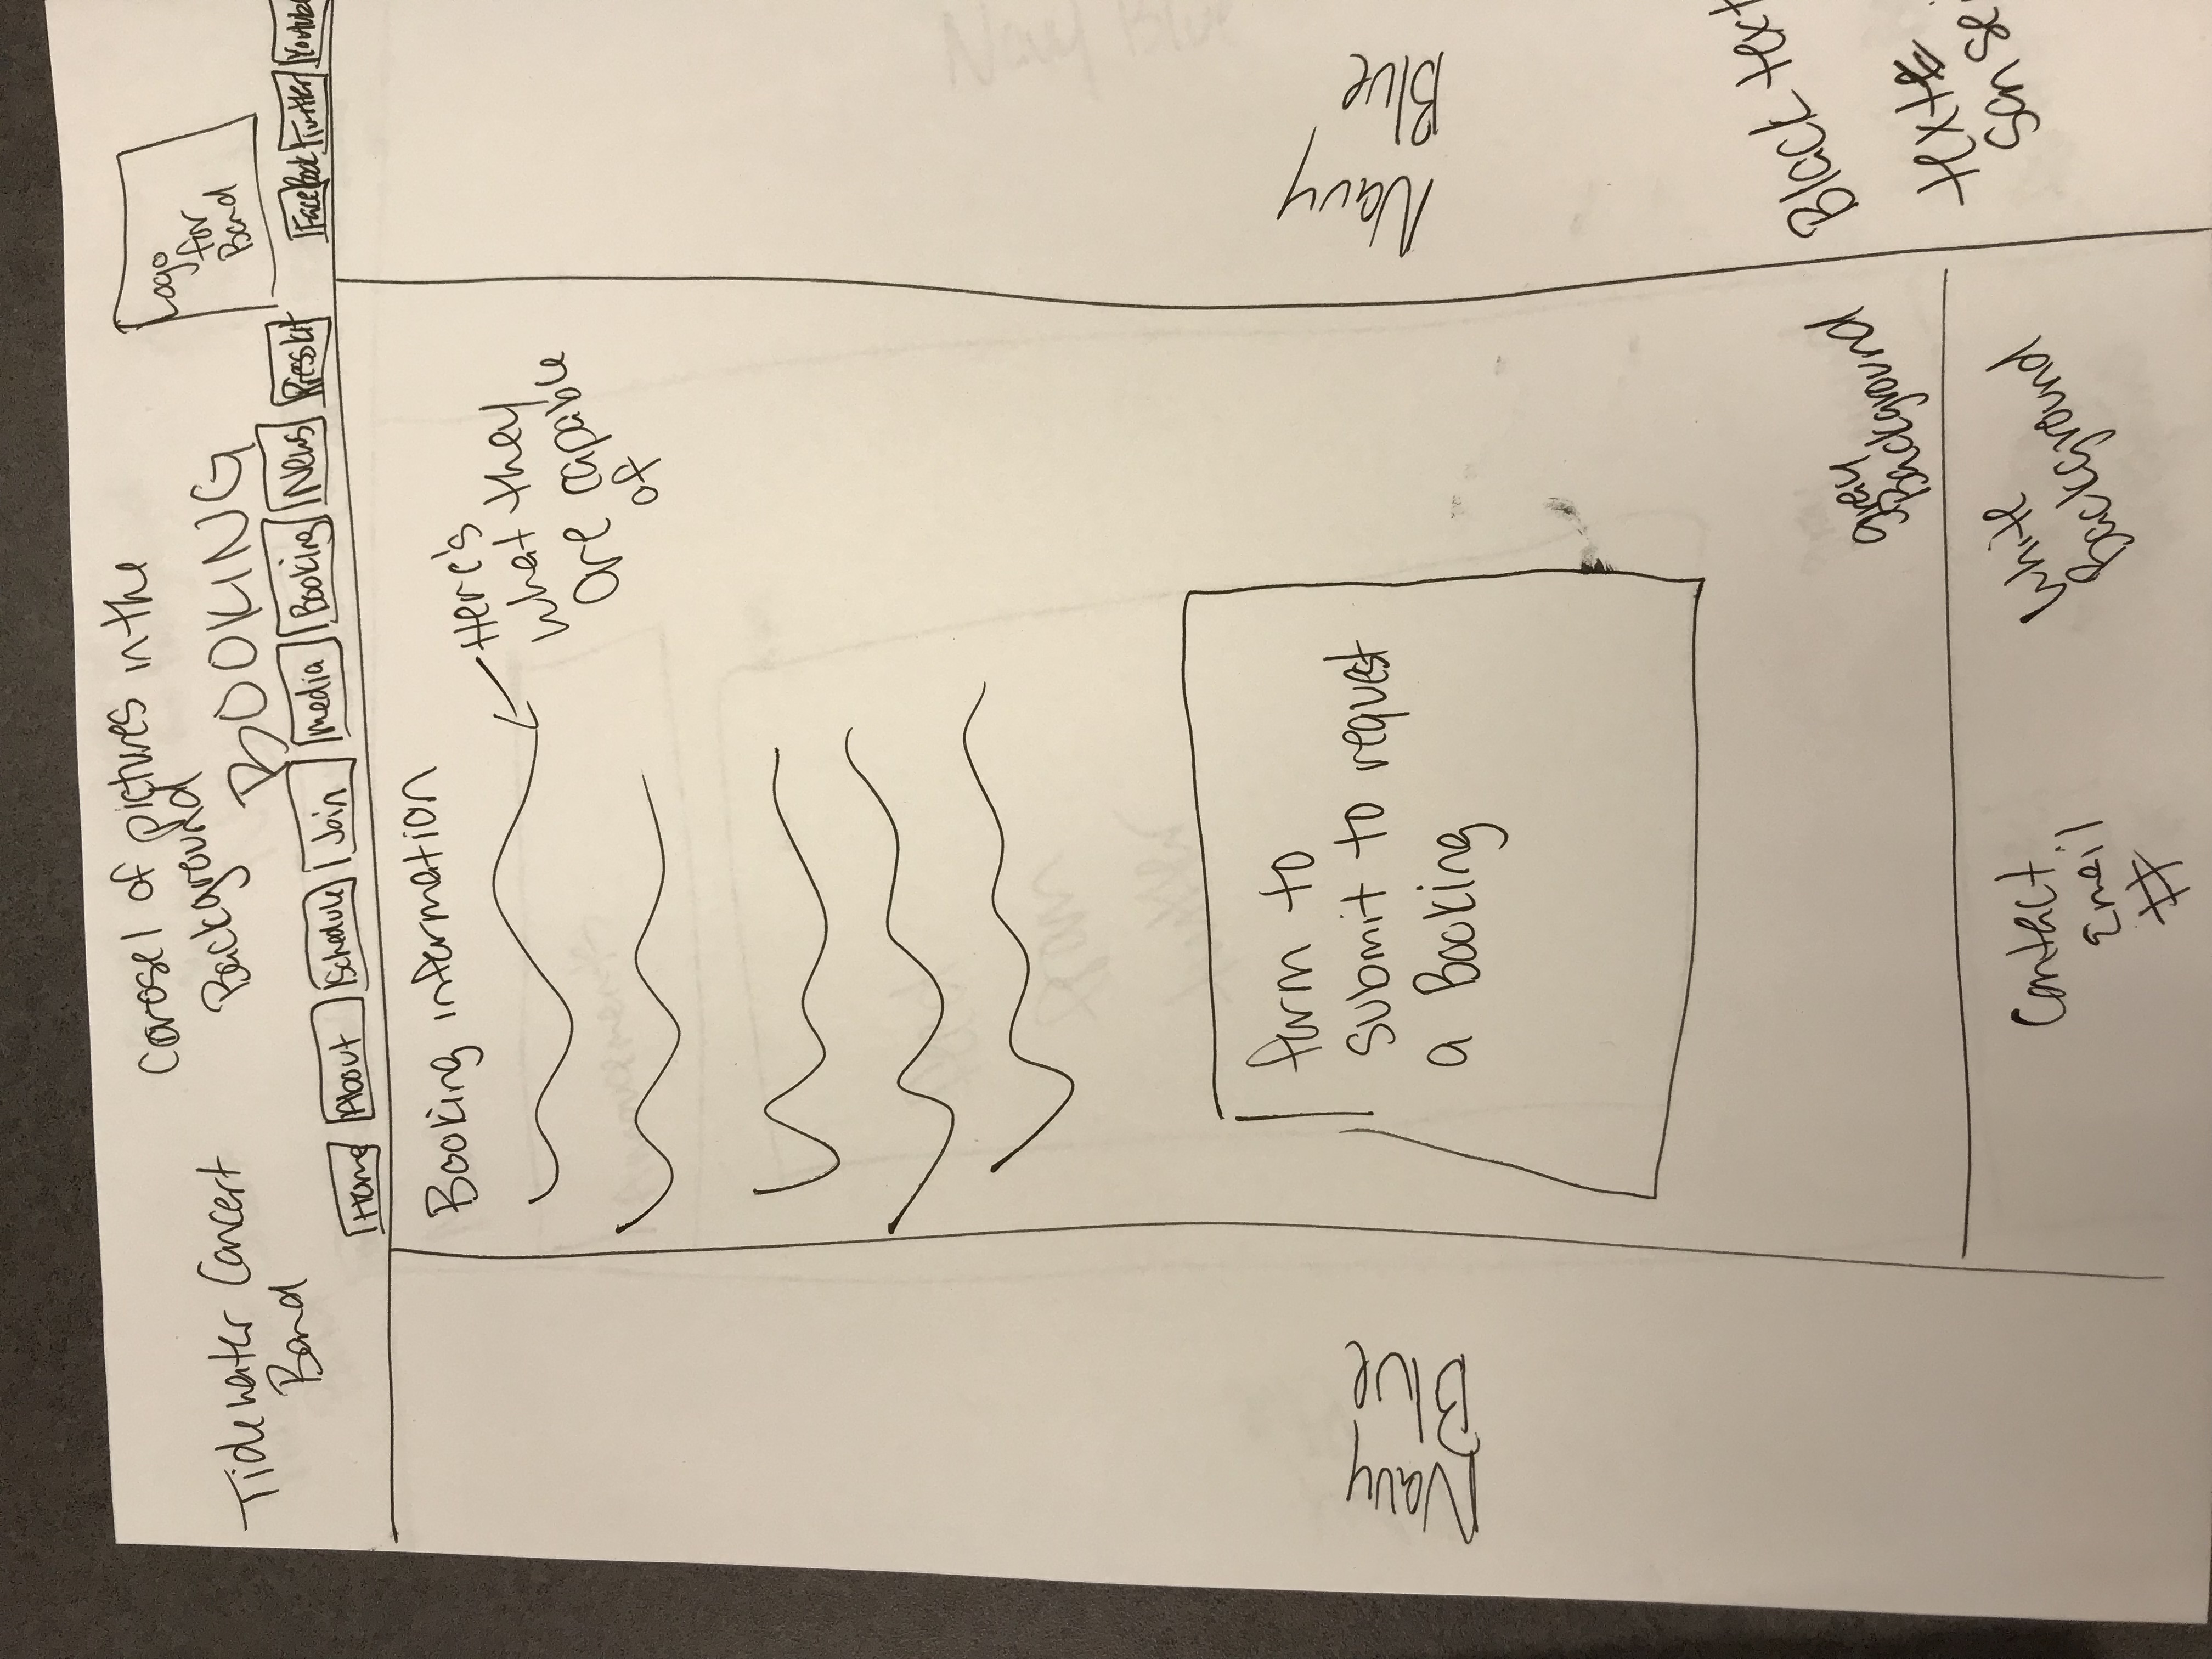 Carosel of pictures in the
Background
Tidewater Concert
Band
BOOKING
Logo
for
Band
Home About Schedule Join media Booking News Press kit FaceBook Twitter Youtube
Booking information
Here's
what they
are capable
of
form to
submit to request
a Booking
Navy
Blue
Navy
Blue
gray
Background
Black text
text
San se
Contact
Email
#
White
Background